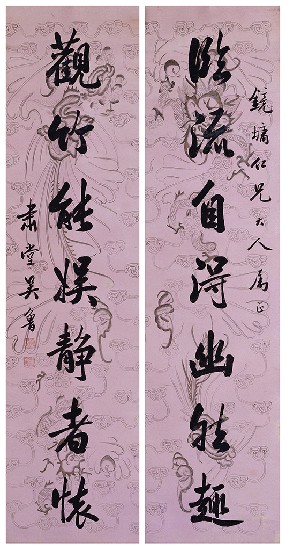 臨流自得幽然趣
鏡墉仁兄大人屬正
觀竹能娛靜者懷
肅堂吳魯